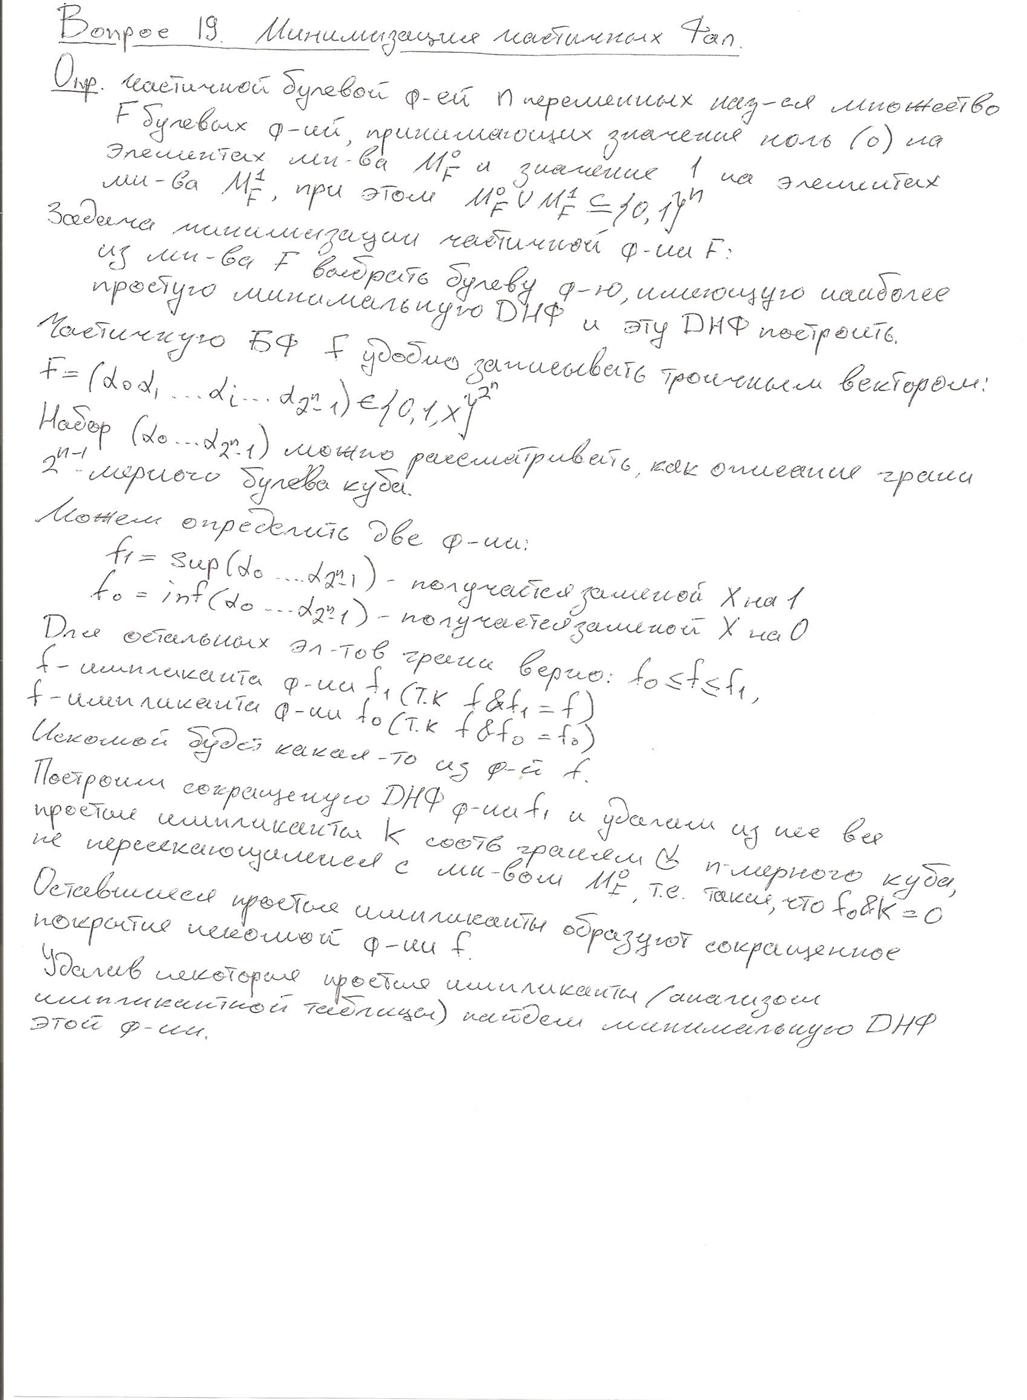 Вопрос 19. Минимизация частичных Фал.
Опр. частичной булевой ф-ей n переменных наз-ся множество
F булевых ф-ий, принимающих значение ноль (0) на
элементах мн-ва M⁰_F и значение 1 на элементах
мн-ва M¹_F, при этом M⁰_F ∪ M¹_F ⊆ {0,1}ⁿ
Задача минимизации частичной ф-ии F:
из мн-ва F выбрать булеву ф-ю, имеющую наиболее
простую минимальную DНФ и эту DНФ построить.
Частичную БФ f удобно записывать троичным вектором:
F = (α₀α₁ ... αᵢ ... α_{2ⁿ-1}) ∈ {0,1,x}^{2ⁿ}
Набор (α₀ ... α_{2ⁿ-1}) можно рассматривать, как описание грани
2ⁿ⁻¹-мерного булева куба.
Можем определить две ф-ии:
f₁ = sup(α₀ ... α_{2ⁿ-1}) - получается заменой X на 1
f₀ = inf(α₀ ... α_{2ⁿ-1}) - получается заменой X на 0
Для остальных эл-тов грани верно: f₀ ≤ f ≤ f₁,
f - импликанта ф-ии f₁ (т.к f & f₁ = f)
f - импликанта ф-ии f₀ (т.к f & f₀ = f₀)
Искомой будет какая-то из ф-й f.
Построим сокращеную DНФ ф-ии f₁ и удалим из нее все
простые импликанты K соотв граням n-мерного куба,
не пересекающимися с мн-вом M⁰_F, т.е. такие, что f₀&K = 0
Оставшиеся простые импликанты образуют сокращенное
покрытие искомой ф-ии f.
Удалив некоторые простые импликанты (анализом
импликантной таблицы) найдем минимальную DНФ
этой ф-ии.